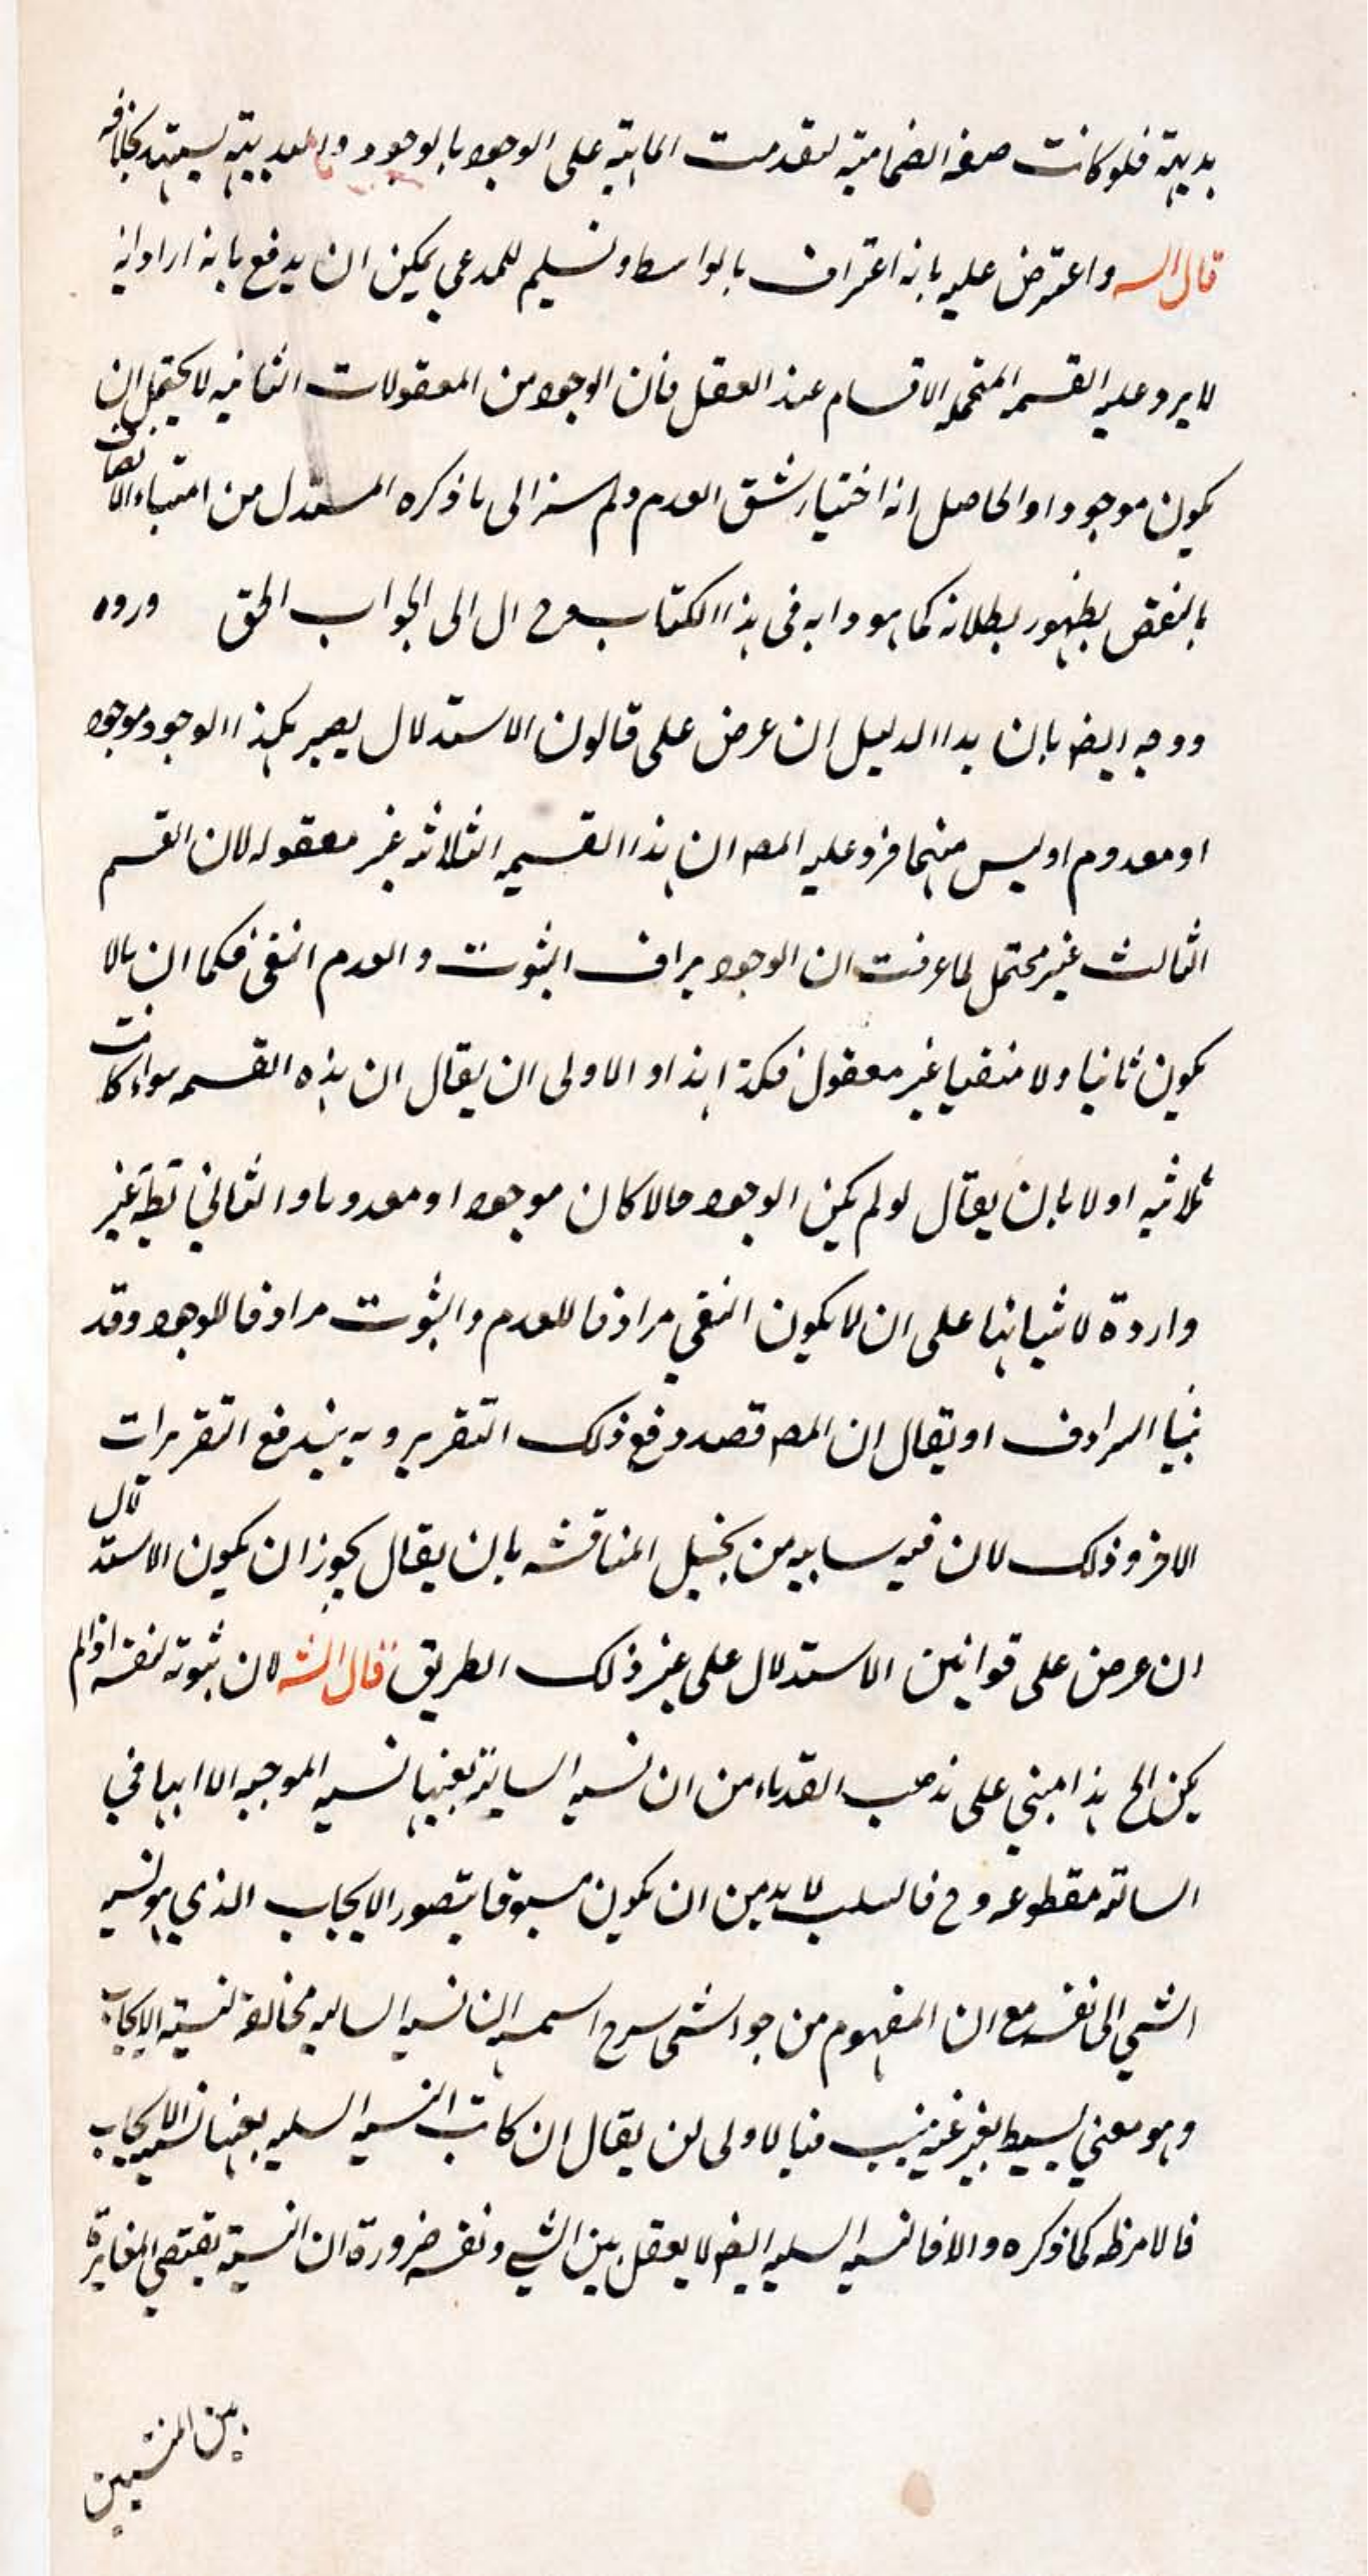 بديهة فلو كانت صفة انضمامية لتقدمت الماهية على الوجود بالوجود والبديهة يشهد بخلافه
قال الش واعترض عليه بانه اعتراف بالواسطه وتسليم للمدعي يمكن ان يدفع بانه اراد انه
لا يرد عليه القسمه المتحمله الاقسام عند العقل فان الوجود من المعقولات الثانيه لا يحتمل ان
يكون موجودا والحاصل انه اختيار شق العدم ولم الى ما ذكره المستدل من امتناع الاتصاف
بالنقيض لظهور بطلانه كما هو دابه في هذا الكتاب وح ال الى الجواب الحق ورده
ووجه ايضا بان هذا الدليل ان عرض على قانون الاستدلال يصير هكذا الوجود موجود
او معدوم او ليس منهما فرد عليه المص ان هذا القسيمه الثلاثه غير معقوله لان القسم
الثالث غير محتمل لما عرفت ان الوجود يرادف الثبوت والعدم النفي فكما ان ما لا
يكون ثابتا ولا منفيا غير معقول فكذا هذا والاولى ان يقال ان هذه القسمه سواء كانت
ثلاثيه او لا بان يقال لو لم يكن الوجود حالا كان موجودا او معدوما والثاني بط غير
واردة لابتنائها على ان لا يكون النفي مرادفا للعدم والثبوت مرادفا للوجود وقد
بينا الترادف او يقال ان المص قصد دفع ذلك التقرير وبه يندفع التقريرات
الاخر وذلك لان فيه من المناقشه بان يقال يجوز ان يكون الاستدلال
ان عرض على قوانين الاستدلال على غير ذلك الطريق قال الش لان ثبوته لنفسه اذا لم
يكن الخ هذا مبني على مذهب القدماء من ان نسبه السالبة بعينها نسبه الموجبه الا انها في
السالبه مقطوعه وح فالسلب لا بد من ان يكون مسبوقا بتصور الايجاب الذي هو نسبه
الشي الى نفسه مع ان المفهوم من النسبه السالبه مخالفة لنسبة الايجاب
وهو معنى بسيط فالاولى ان يقال ان كانت النسبه السلبيه بعينها نسبه الايجاب
فالامر ظ كما ذكره والا فالنسبه السلبيه ايضا لا يعقل بين الشي ونفسه ضرورة ان النسبة يقتضي المغايرة
بين المنتسبين